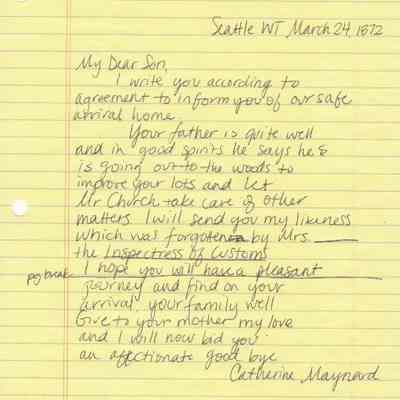 Seattle WT March 24, 1872
My Dear Son,
I write you according to
agreement to inform you of our safe
arrival home.
Your father is quite well
and in good spirits he says he &
is going out to the woods to
improve your lots and let
Mr Church take care of other
matters I will send you my likeness
which was forgoten by Mrs. ____
the Inspectress of Customs
pg break I hope you will have a pleasant ____
journey and find on your
arrival your family well
Give to your mother my love
and I will now bid you
an affectionate good bye
Catherine Maynard